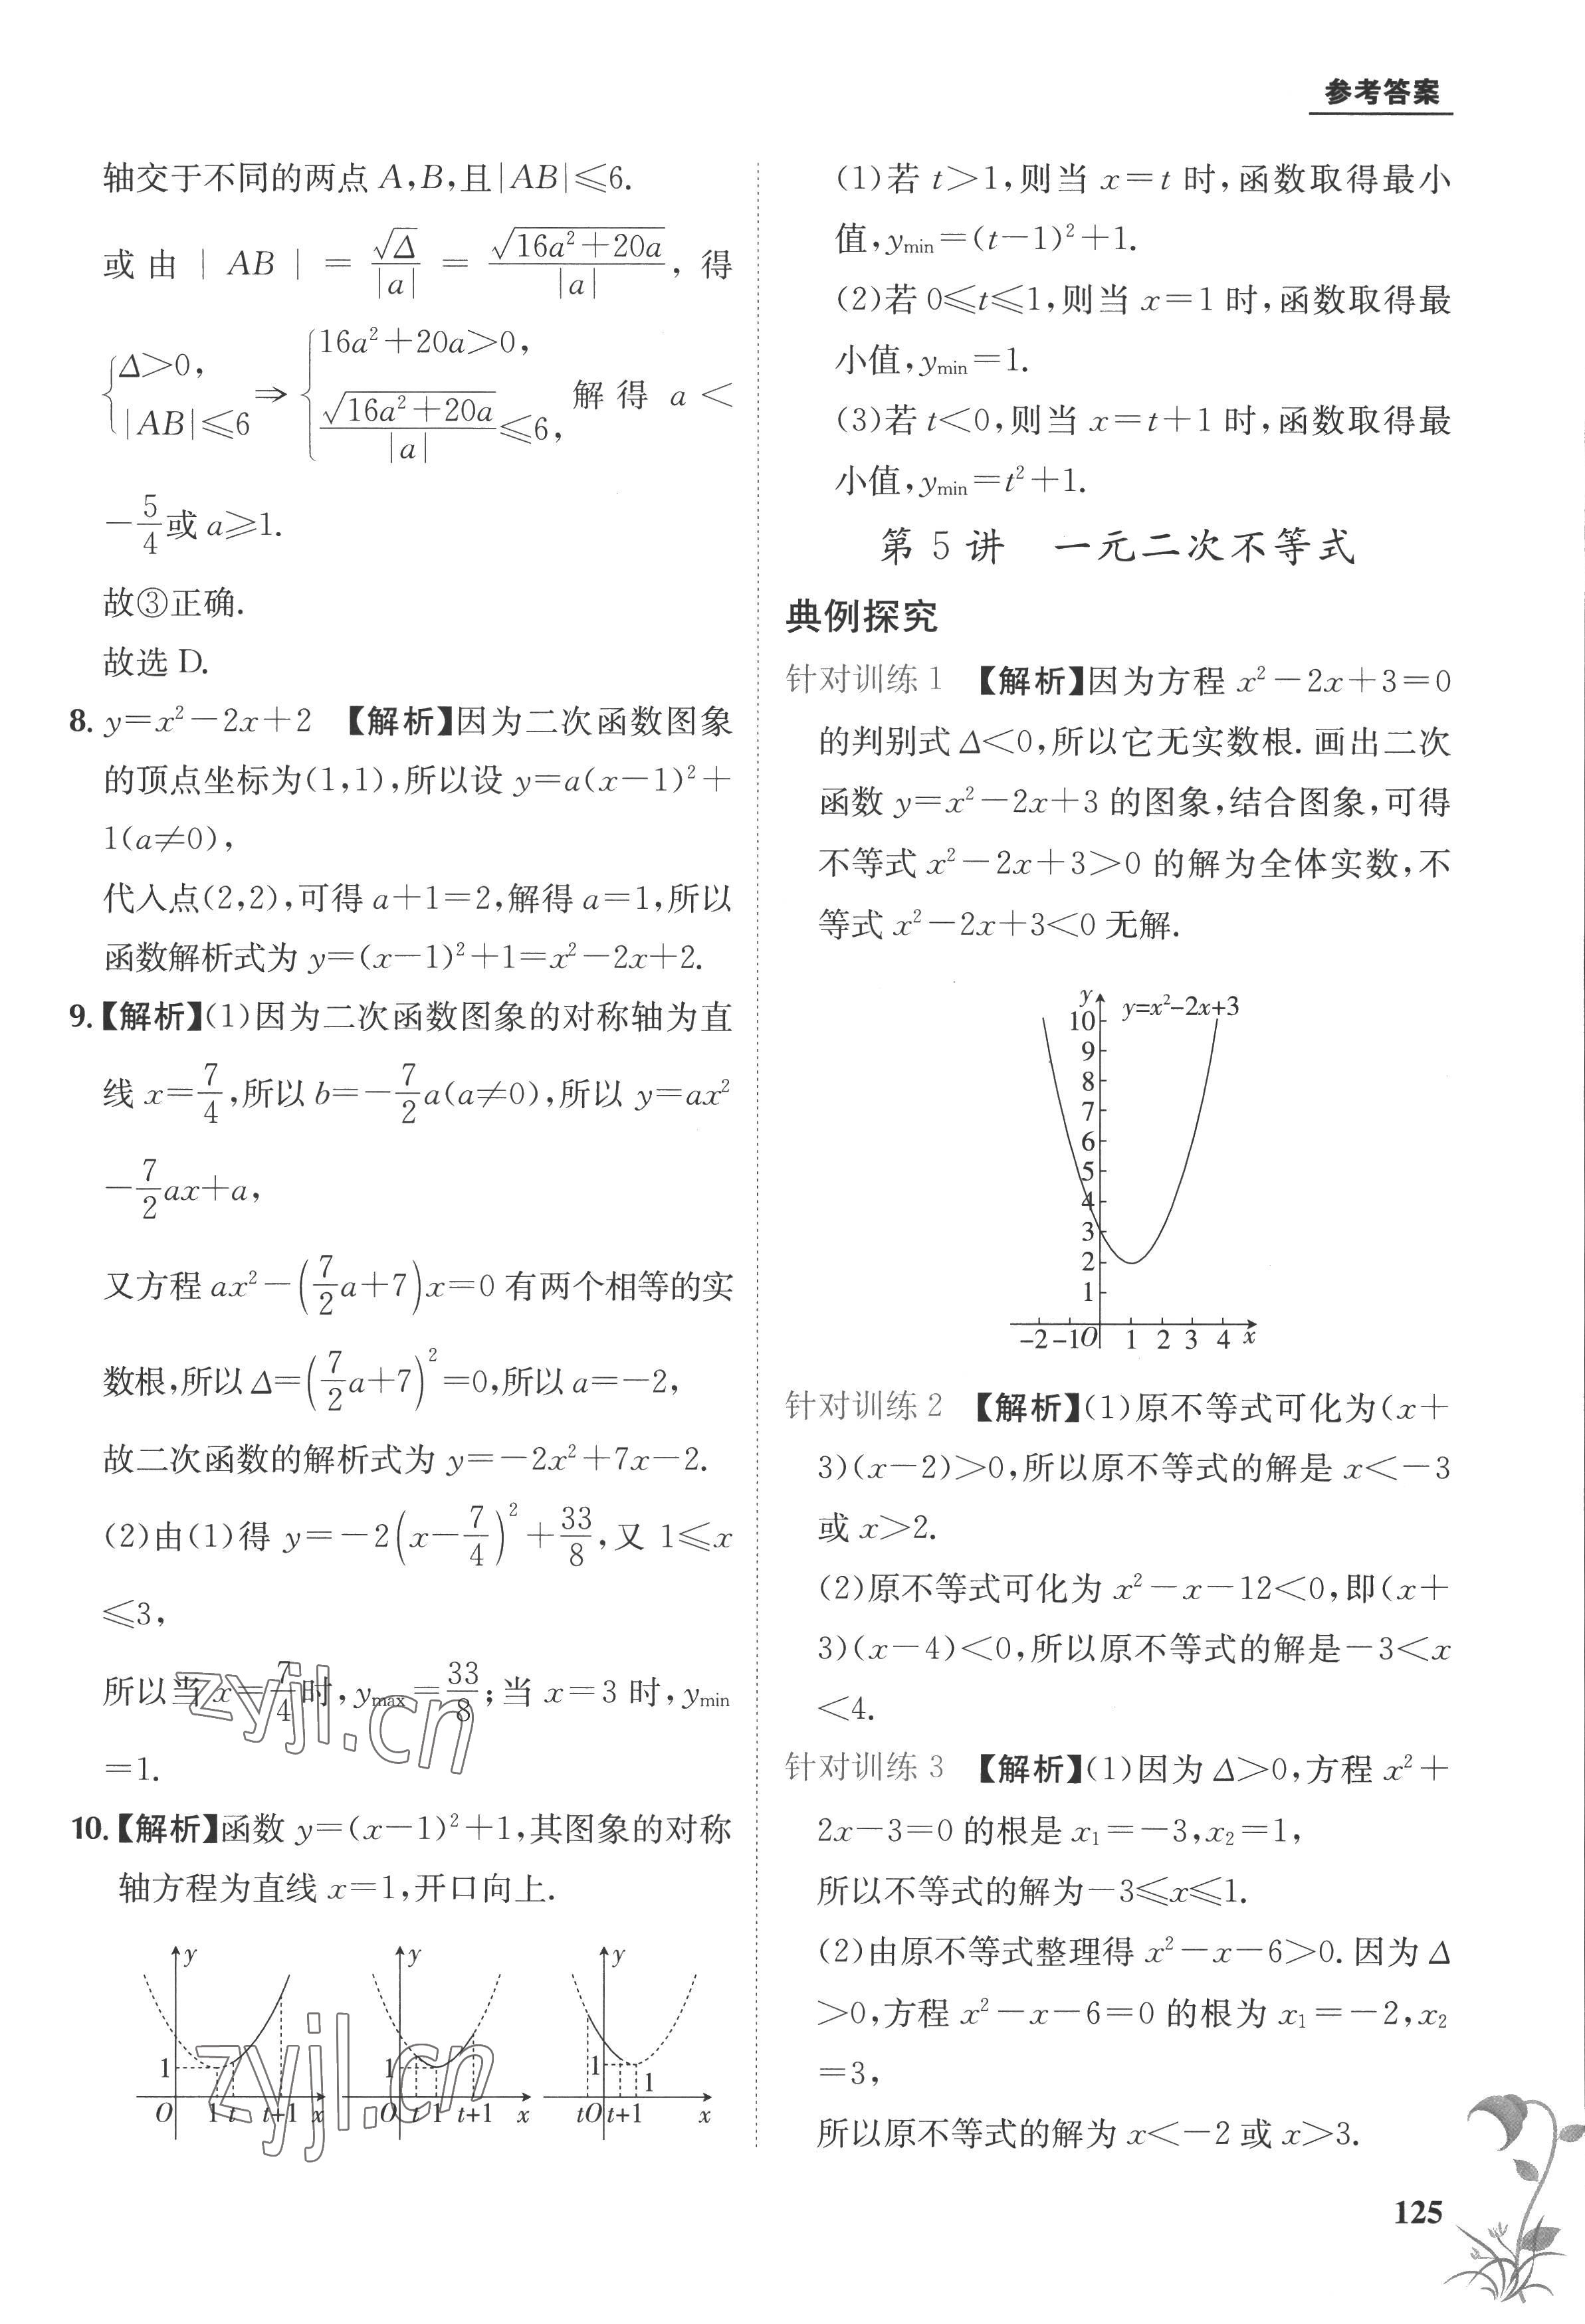 参考答案
轴交于不同的两点 A,B,且|AB|≤6.
或由 |AB| = √Δ/|a| = √(16a²+20a)/|a|, 得
{Δ>0, |AB|≤6 ⇒ {16a²+20a>0, √(16a²+20a)/|a|≤6, 解得 a<
-5/4或 a≥1.
故③正确.
故选 D.
8. y=x²-2x+2 【解析】因为二次函数图象
的顶点坐标为(1,1),所以设 y=a(x-1)²+
1(a≠0),
代入点(2,2),可得 a+1=2,解得 a=1,所以
函数解析式为 y=(x-1)²+1=x²-2x+2.
9.【解析】(1)因为二次函数图象的对称轴为直
线 x=7/4,所以 b=-7/2a(a≠0),所以 y=ax²
-7/2ax+a,
又方程 ax²-(7/2a+7)x=0 有两个相等的实
数根,所以 Δ=(7/2a+7)²=0,所以 a=-2,
故二次函数的解析式为 y=-2x²+7x-2.
(2)由(1)得 y=-2(x-7/4)²+33/8,又 1≤x
≤3,
所以当 x=7/4时,ymax=33/8;当 x=3 时,ymin
=1.
10.【解析】函数 y=(x-1)²+1,其图象的对称
轴方程为直线 x=1,开口向上.
y y y
1 1 1 1
O 1 t t+1 x O t 1 t+1 x t O t+1 x
zyjl.cn
zyjl.cn
(1)若 t>1,则当 x=t 时,函数取得最小
值,ymin=(t-1)²+1.
(2)若 0≤t≤1,则当 x=1 时,函数取得最
小值,ymin=1.
(3)若 t<0,则当 x=t+1 时,函数取得最
小值,ymin=t²+1.
第 5 讲 一元二次不等式
典例探究
针对训练 1 【解析】因为方程 x²-2x+3=0
的判别式 Δ<0,所以它无实数根. 画出二次
函数 y=x²-2x+3 的图象,结合图象,可得
不等式 x²-2x+3>0 的解为全体实数,不
等式 x²-2x+3<0 无解.
y
y=x²-2x+3
10
9
8
7
6
5
4
3
2
1
-2 -1 O 1 2 3 4 x
针对训练 2 【解析】(1)原不等式可化为(x+
3)(x-2)>0,所以原不等式的解是 x<-3
或 x>2.
(2)原不等式可化为 x²-x-12<0,即(x+
3)(x-4)<0,所以原不等式的解是-3<x
<4.
针对训练 3 【解析】(1)因为 Δ>0,方程 x²+
2x-3=0 的根是 x₁=-3,x₂=1,
所以不等式的解为-3≤x≤1.
(2)由原不等式整理得 x²-x-6>0. 因为 Δ
>0,方程 x²-x-6=0 的根为 x₁=-2,x₂
=3,
所以原不等式的解为 x<-2 或 x>3.
125